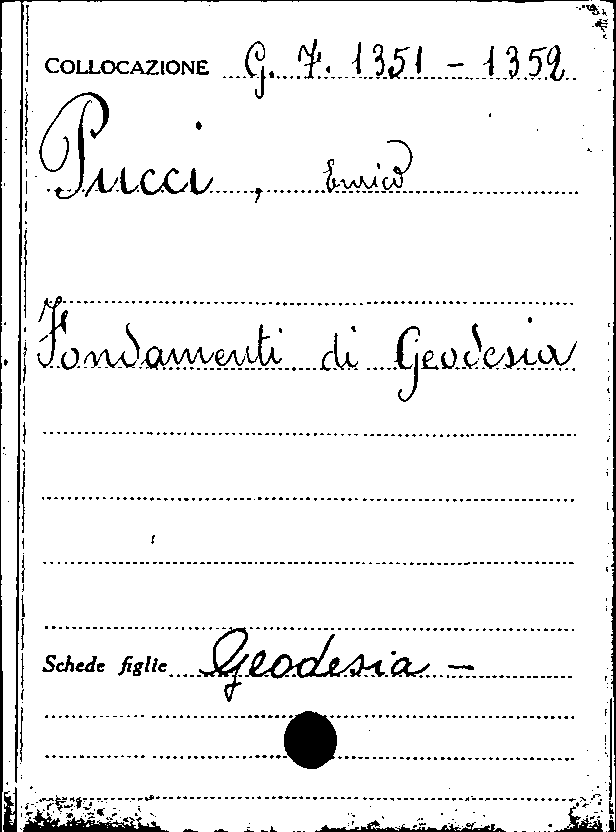 COLLOCAZIONE G. 7. 1351 - 1352
Pucci, Enrico
Fondamenti di Geodesia
Schede figlie Geodesia -